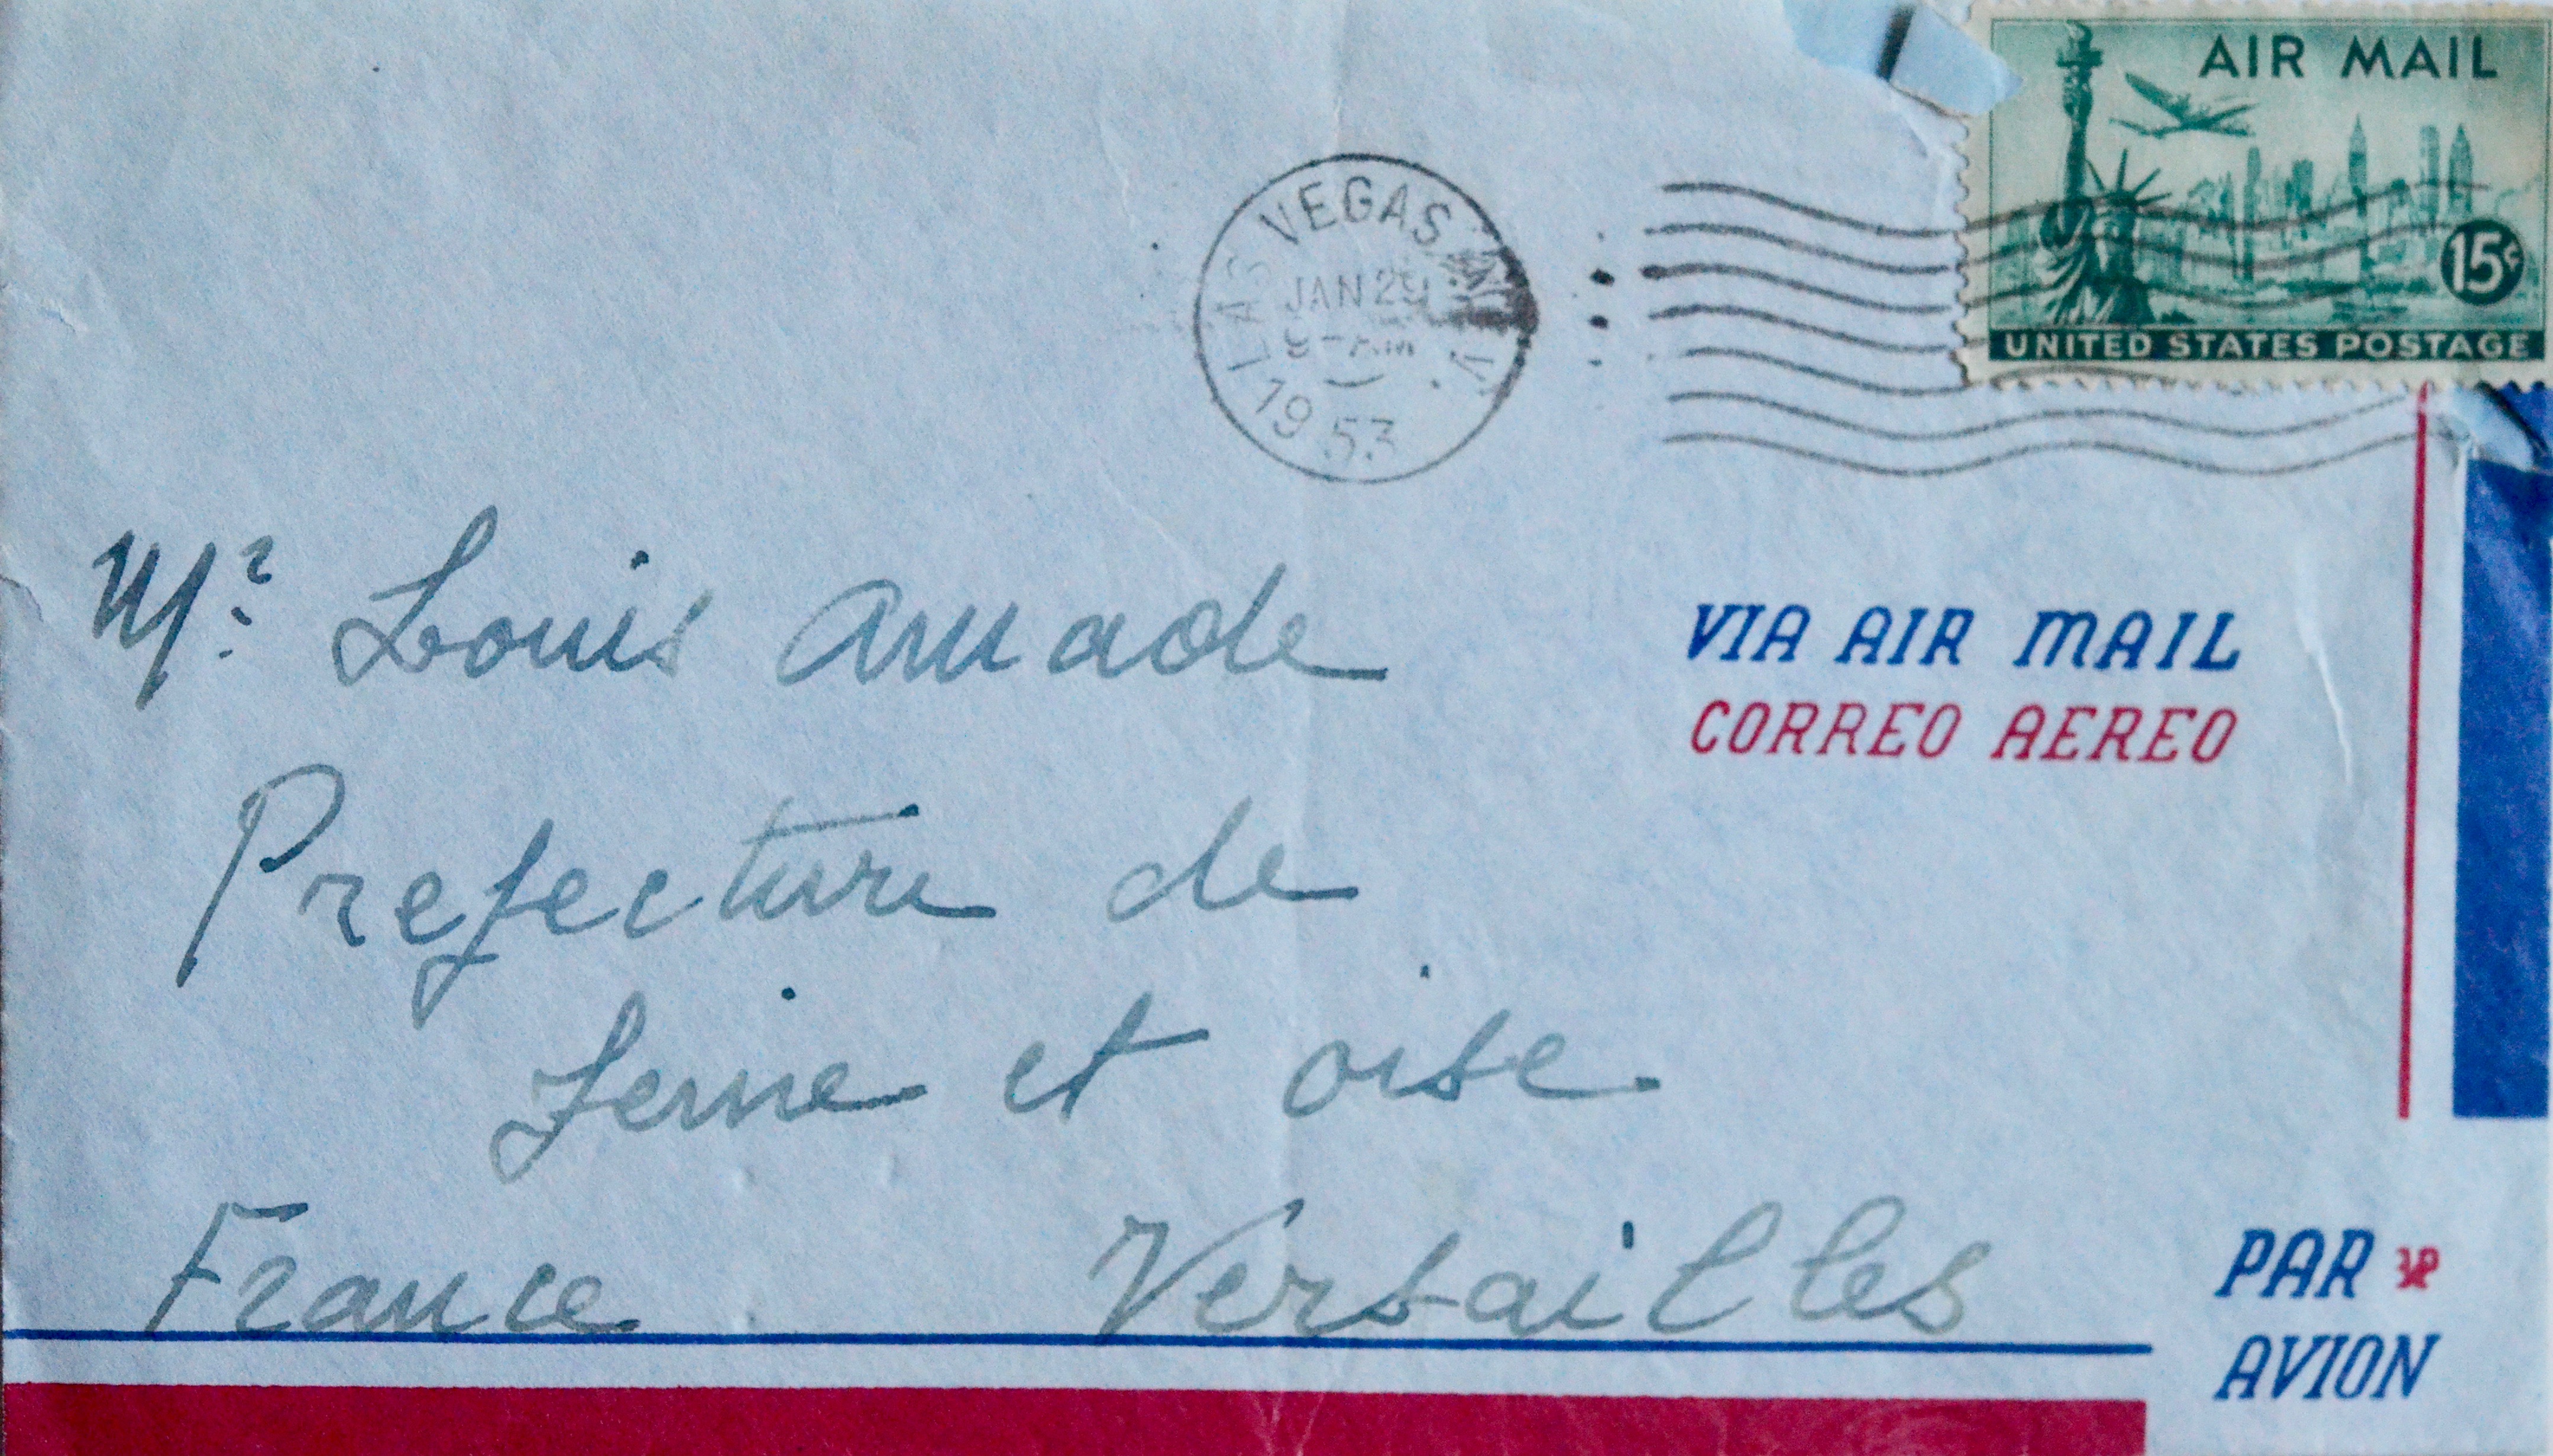 AIR MAIL
15¢
UNITED STATES POSTAGE
LAS VEGAS
JAN 29
9-AM
1953
Mr. Louis Amade
VIA AIR MAIL
CORREO AEREO
Prefecture de
Seine et oise
France Versailles
PAR
AVION